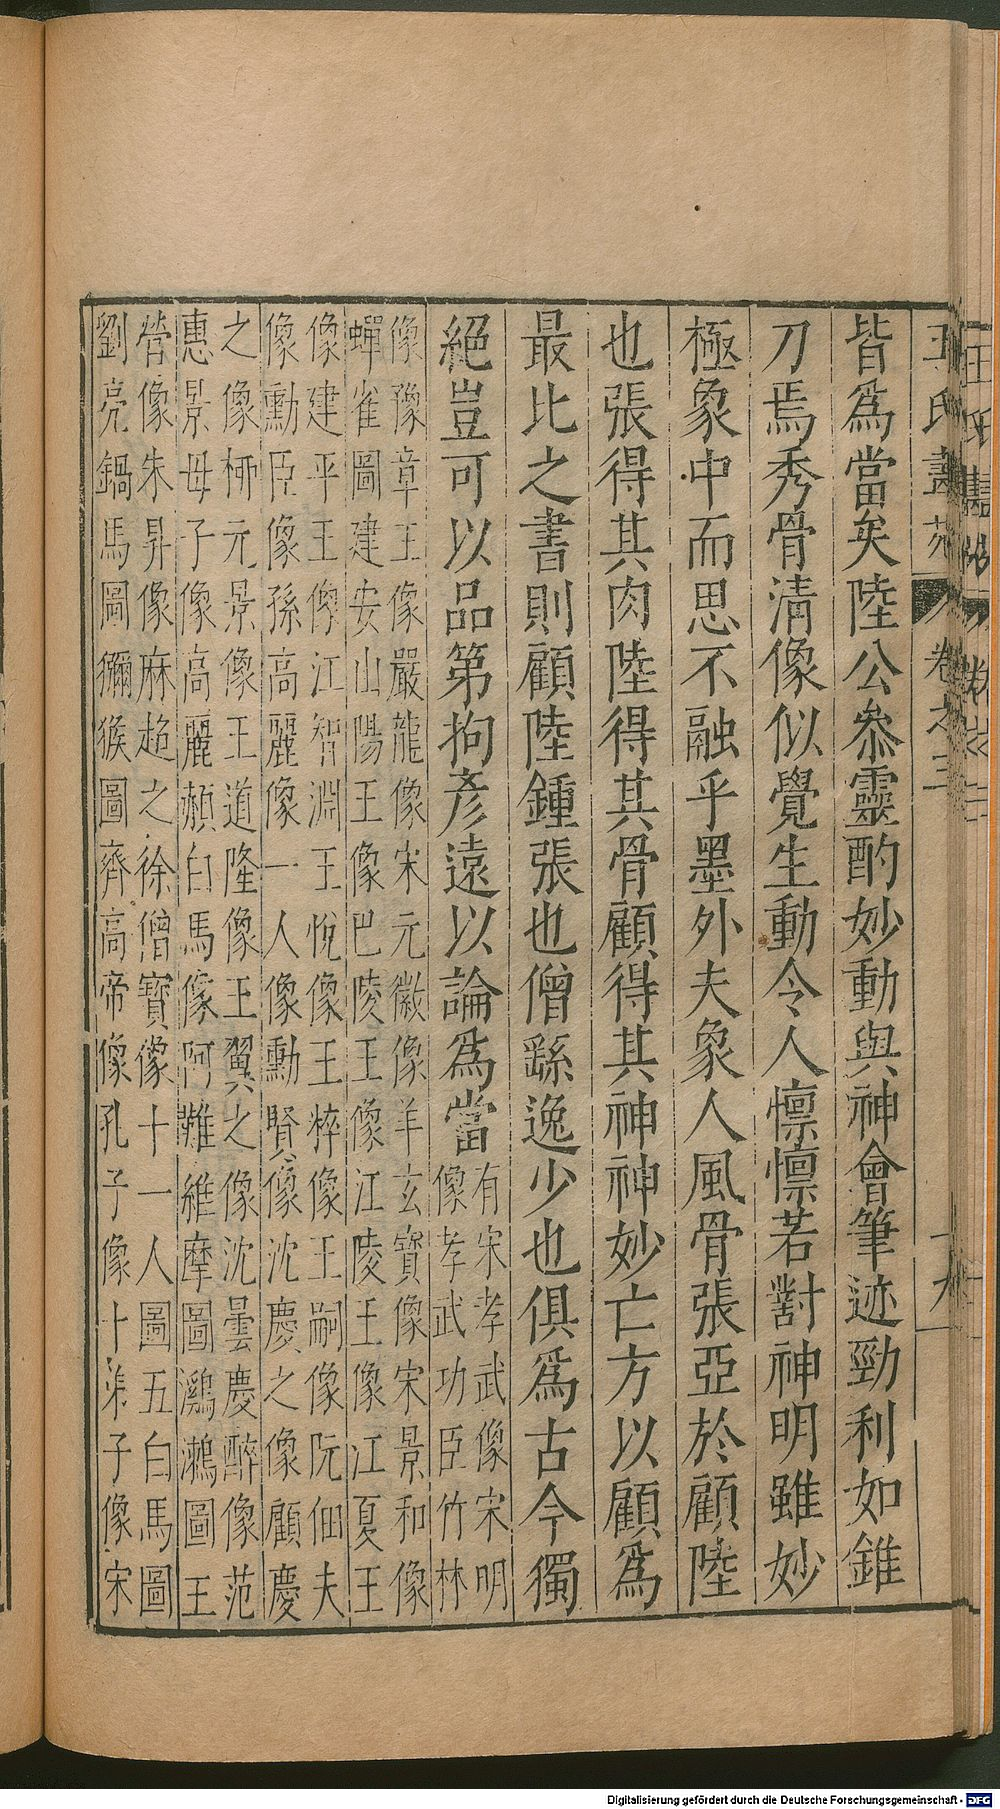 王氏畫苑 卷之三 十九
皆爲當矣陸公叅靈酌妙動與神會筆迹勁利如錐
刀焉秀骨清像似覺生動令人懍懍若對神明雖妙
極象中而思不融乎墨外夫象人風骨張亞於顧陸
也張得其肉陸得其骨顧得其神神妙亡方以顧爲
最比之書則顧陸鍾張也僧繇逸少也俱爲古今獨
絕豈可以品第拘彥遠以論爲當
有宋孝武像宋明
像孝武功臣竹林
像豫章王像嚴龍像宋元徽像羊玄寶像宋景和像
蟬雀圖建安山陽王像巴陵王像江陵王像江夏王
像建平王像江智淵王悅像王粹像王嗣像阮佃夫
像勳臣像孫高麗像一人像勳賢像沈慶之像顧慶
之像栁元景像王道隆像王翼之像沈曇慶醉像范
惠景母子像高麗赬白馬像阿難維摩圖鸂鶒圖王
營像朱昇像麻超之徐僧寶像十一人圖五白馬圖
劉亮鍋馬圖獼猴圖齊高帝像孔子像十弟子像宋
Digitalisierung gefördert durch die Deutsche Forschungsgemeinschaft - DFG